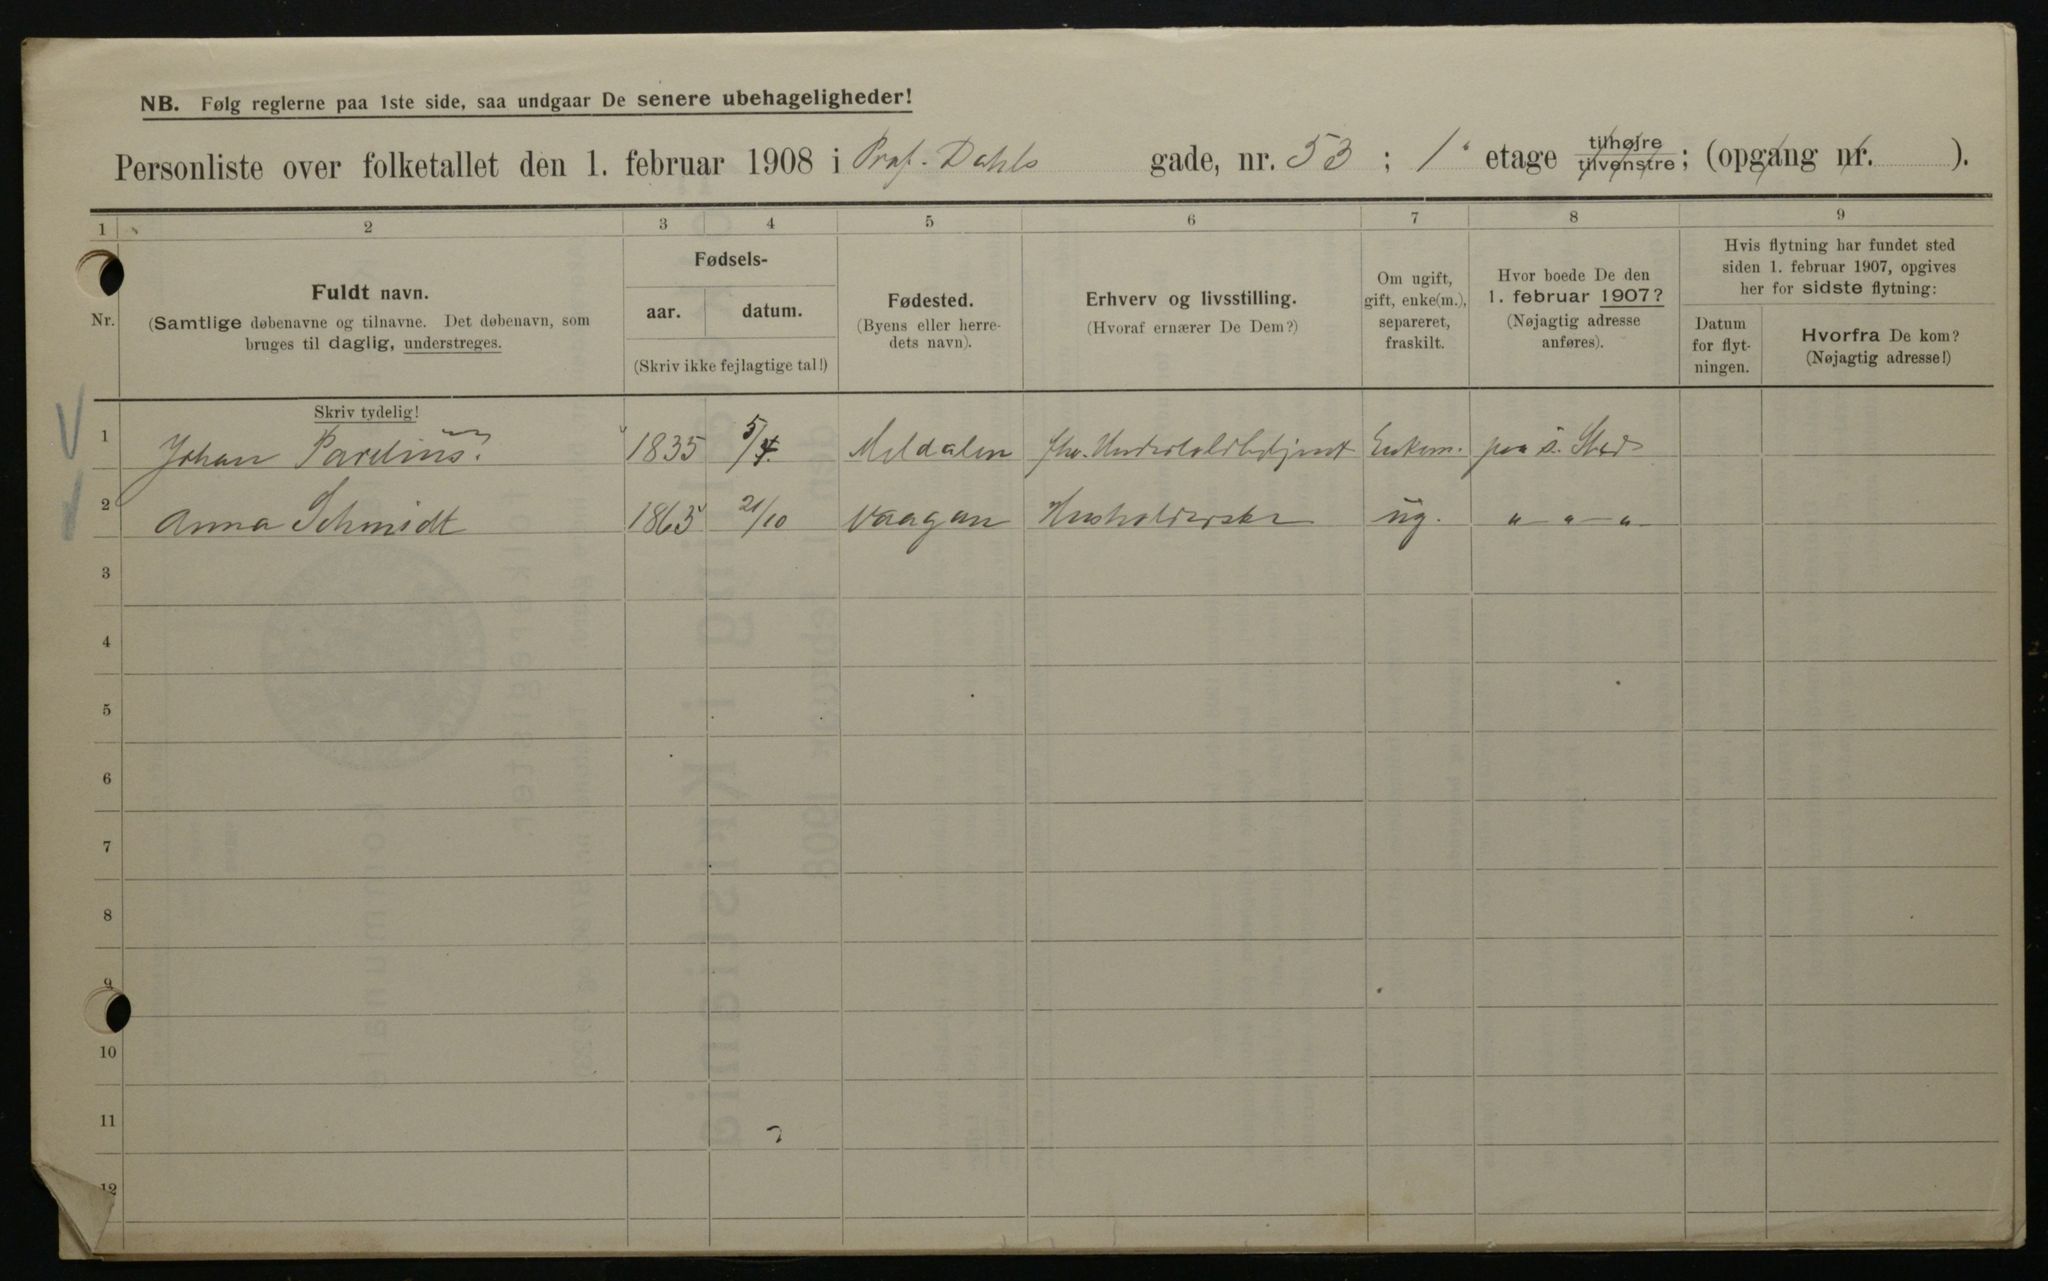 NB. Følg reglerne paa 1ste side, saa undgaar De senere ubehageligheder!
Personliste over folketallet den 1. februar 1908 i Prof. Dahls gade, nr. 53 ; 1 etage tilhøjre tilvenstre ; (opgang nr. ).
1 2 3 4 5 6 7 8 9
Nr.
Fuldt navn.
(Samtlige døbenavne og tilnavne. Det døbenavn, som
bruges til daglig, understreges.
Fødsels-
aar. datum.
(Skriv ikke fejlagtige tal!)
Fødested.
(Byens eller herre-
dets navn).
Erhverv og livsstilling.
(Hvoraf ernærer De Dem?)
Om ugift,
gift, enke(m.),
separeret,
fraskilt.
Hvor boede De den
1. februar 1907?
(Nøjagtig adresse
anføres).
Hvis flytning har fundet sted
siden 1. februar 1907, opgives
her for sidste flytning:
Datum
for flyt-
ningen.
Hvorfra De kom?
(Nøjagtig adresse!)
Skriv tydelig!
1 Johan Parelius. 1835 5/4. Meldalen Enkem. paa s. Sted
2 Anna Schmidt 1865 21/10 Vaagan Husholderske ug. " - " - " -
3
4
5
6
7
8
9
10
11
12